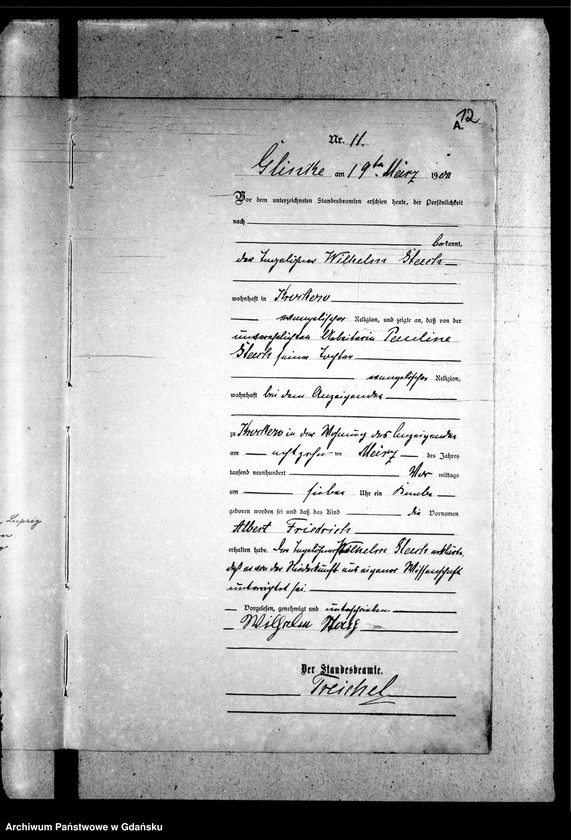 12
A.
Nr. 11.
Glinke am 19ten März 1900
Vor dem unterzeichneten Standesbeamten erschien heute, der Persönlichkeit
nach
bekannt,
der Wilhelm
wohnhaft in
evangelischer Religion, und zeigte an, daß von der
unverehelichten Arbeiterin Pauline
seiner Tochter
evangelischer Religion,
wohnhaft bei dem Anzeigenden
zu in der Wohnung des Anzeigenden
am achtzehnten März des Jahres
tausend neunhundert Vor mittags
um sieben Uhr ein Knabe
geboren worden sei und daß das Kind die Vornamen
Albert Friedrich
erhalten habe. Der Wilhelm erklärte,
daß er von der Niederkunft aus eigener Wissenschaft
unterrichtet sei.
Vorgelesen, genehmigt und unterschrieben
Wilhelm
Der Standesbeamte.
Treichel
Leipzig
Archiwum Państwowe w Gdańsku